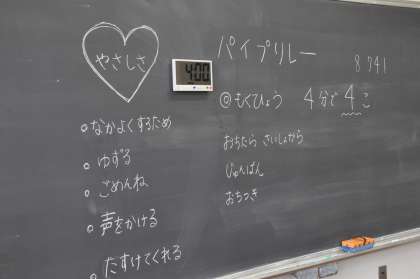 やさしさ
なかよくするため
ゆずる
ごめんね
声をかける
たすけてくれる
4:00
パイプリレー
8741
◎もくひょう 4分で4こ
おちたら さいしょから
じゅんばん
おちつき